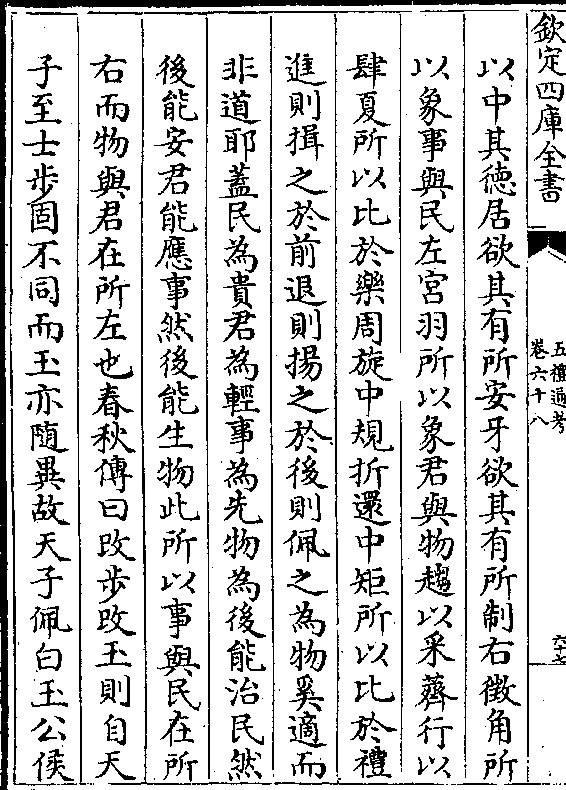 欽定四庫全書
五禮通考
卷六十八
六十七
以中其徳居欲其有所安牙欲其有所制右徴角所
以象事與民左宮羽所以象君與物趨以采薺行以
肆夏所以比於樂周旋中規折還中矩所以比於禮
進則揖之於前退則揚之於後則佩之為物奚適而
非道耶蓋民為貴君為輕事為先物為後能治民然
後能安君能應事然後能生物此所以事與民在所
右而物與君在所左也春秋傳曰改步改玉則自天
子至士步固不同而玉亦隨異故天子佩白玉公侯